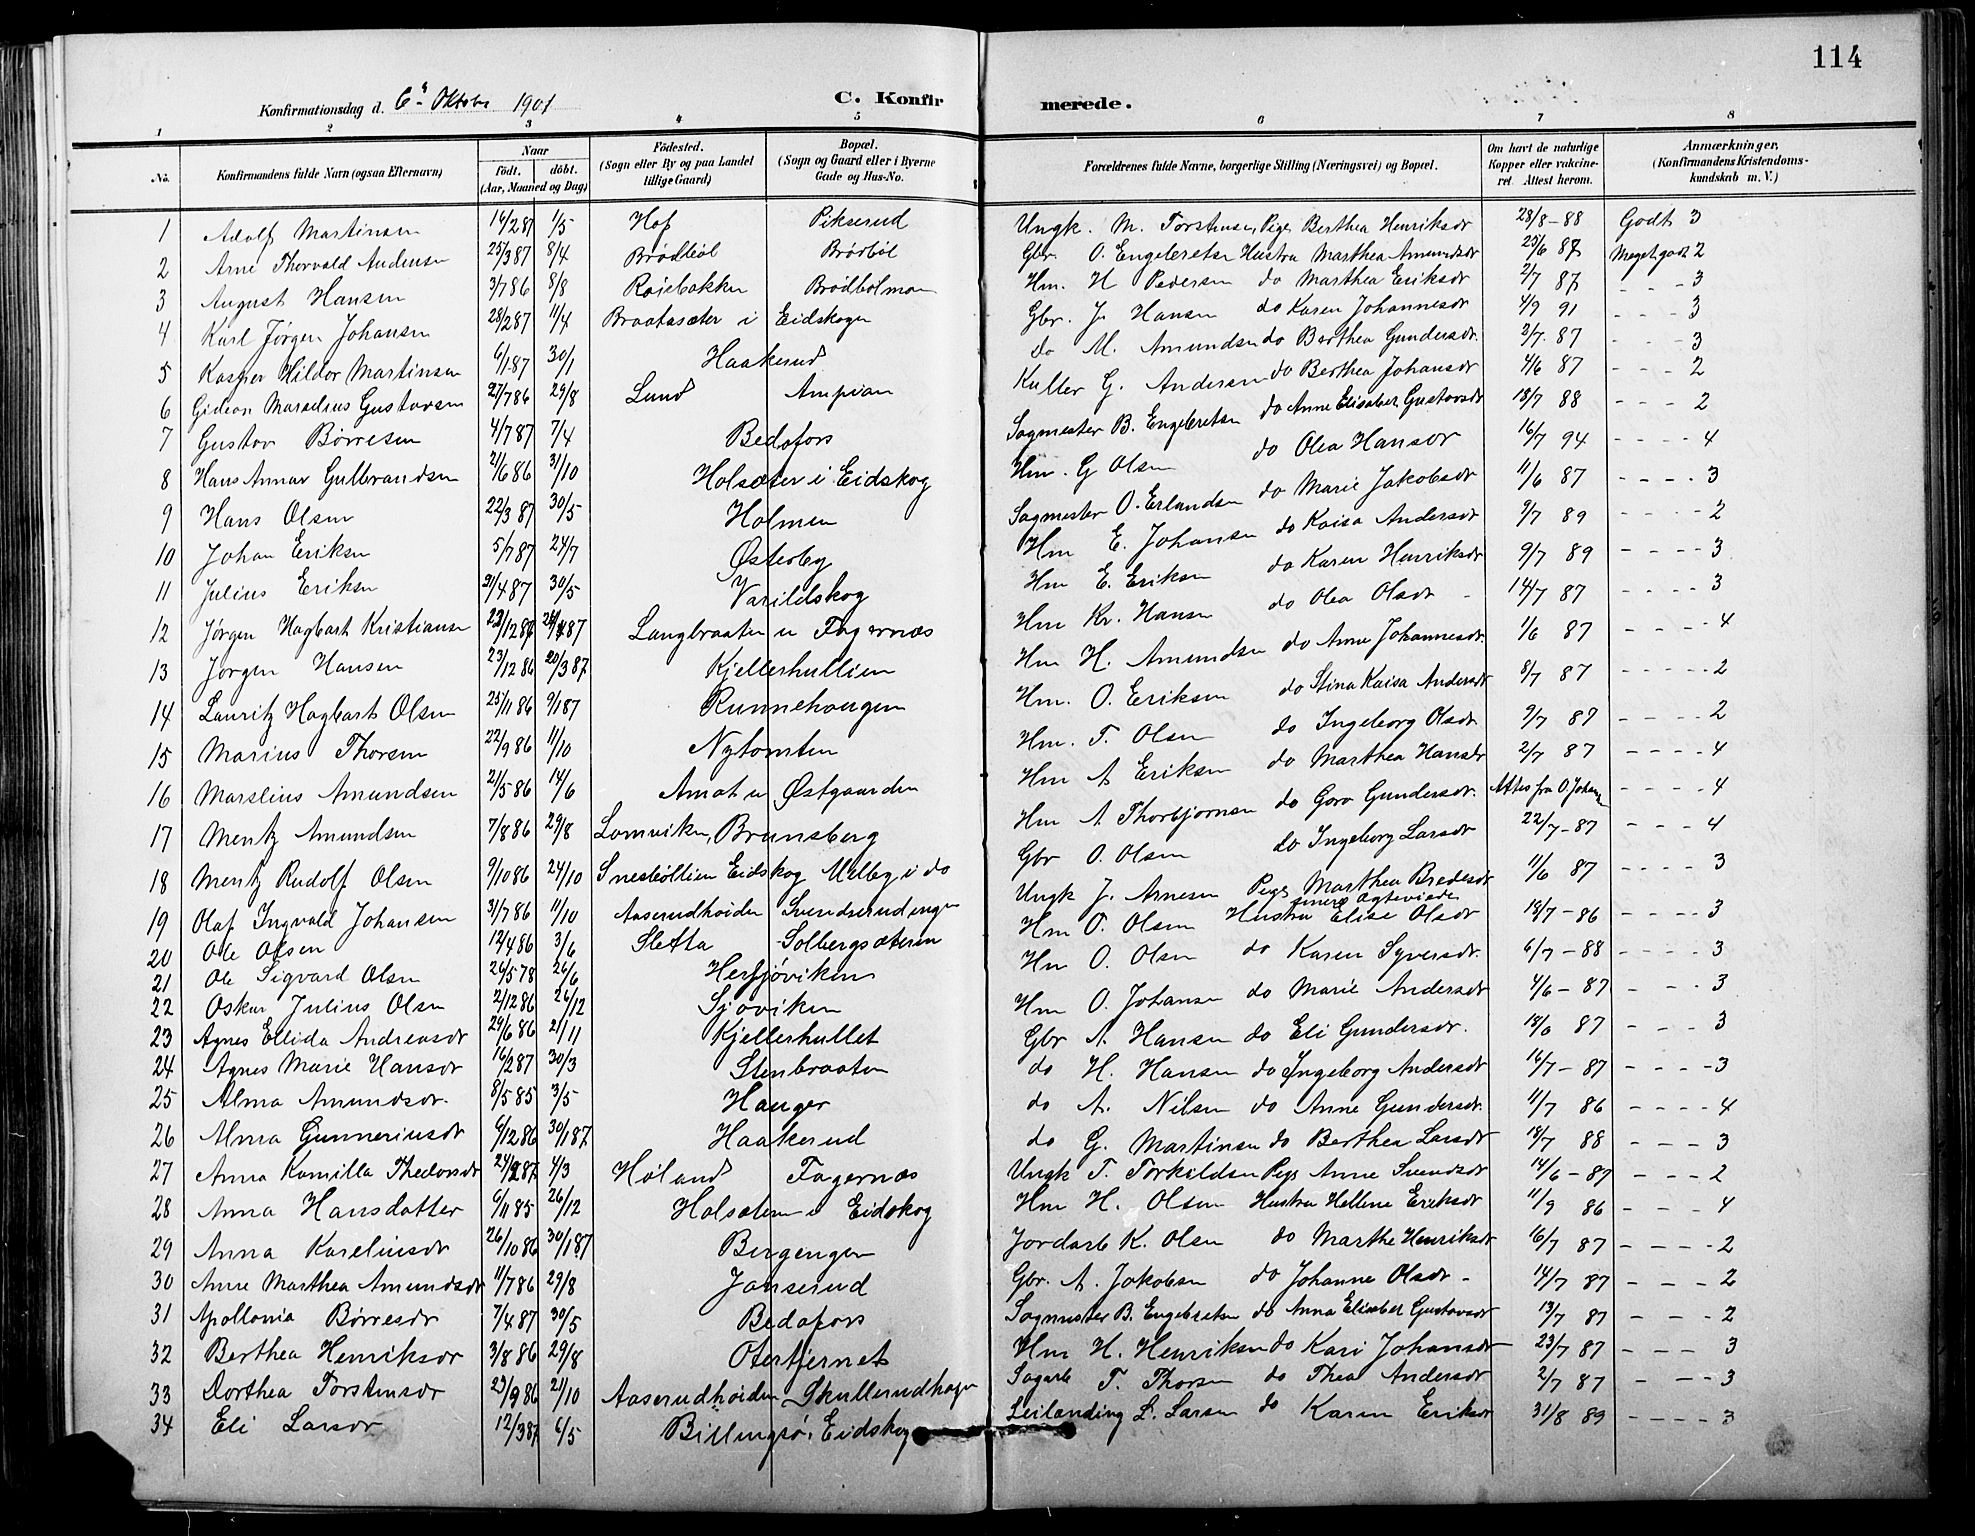 114
Konfirmationsdag d. 6te Oktober 1901 C. Konfirmerede.
1 2 3 4 5 6 7 8
No. Konfirmandens fulde Navn (ogsaa Efternavn) Naar födt. döbt. (Aar, Maaned og Dag) Födested. (Sogn eller By og paa Landet tillige Gaard) Bopæl. (Sogn og Gaard eller i Byerne Gade og Hus-No. Forældrenes fulde Navne, borgerlige Stilling (Næringsvei) og Bopæl. Om havt de naturlige Kopper eller vakcineret. Attest herom. Anmærkninger. (Konfirmandens Kristendomskundskab m. V.)
1 Adolf Martinsen 14/2 87 1/5 Hof Pikserud Ungk. M. Torstensen, Pige Berthea Henriksdr 28/8-88 Godt 3
2 Arne Thorvald Andersen 25/3 87 8/4 Brödböl Brödböl Gbr. O. Engebretsen Hustru Marthea Amundsdr 25/6 87 Meget godt 2
3 August Hansen 3/7 86 8/8 Röiebakken Brödbölmoen Hm. H Pedersen do Marthea Eriksdr 2/7 87 - - - 3
4 Karl Jørgen Johansen 28/2 87 11/4 Braatasæter i Eidskogen Gbr. J. Hansen do Karen Johannesdr 4/9 91 - - - 3
5 Kasper Hildor Martinsen 6/1 87 30/1 Haakerud do M. Amundsen do Berthea Gundersdr. 2/7. 87 - - - 3
6 Gideon Marselius Gustavsen 27/7 86 29/8 Lund Ampian Kuller G. Andersen do Berthea Johansdr 4/6 87 - - - 2
7 Gustav Børresen 4/7 87 7/4 Bedafors Sagmester B. Engebretsen do Anne Elisabet Gustavsdr 18/7 88 - - - 2
8 Hans Annar Gulbrandsen 21/6 86 31/10 Holsæter i Eidskog Hm. G Olsen do Olea Hansdr 16/7 94 - - - - 4
9 Hans Olsen 22/3 87 30/5 Holmen Sagmester O. Erlandsen do Marie Jakobsdr 11/6 87 - - - - 3
10 Johan Eriksen 5/7 87 24/7 Østerby Hm E. Johansen do Kaisa Andersdr 9/7 89 - - - - 2
11 Julius Eriksen 21/4 87 30/5 Varildskog Hm E. Eriksen do Karen Henriksdr 9/7 89 - - - - 3
12 Jørgen Hagbart Kristiansen 23/12 86 87 Langbraaten u Fagernæs Hm Kr. Hansen do Olea Olsdr - 14/7 87 - - - - 3
13 Jørgen Hansen 23/12 86 20/3 87 Kjellerhullien Hm H. Amundsen do Anne Johannesdr. 1/6 87 - - - - 4
14 Lauritz Hagbart Olsen 25/11 86 9/1 87 Runnehaugen Hm. O. Eriksen do Stina Kaisa Andersdr 8/7 87 - - - - 2
15 Marius Thorsen 22/9 86 11/10 Nytomten Hm. T. Olsen do Ingeborg Olsdr. 9/7 87 - - - - 2
16 Marselius Amundsen 21/5 86 14/6 Amot u Østgaarden Hm A Eriksen do Marthea Hansdr 2/7 87 - - - - 4
17 Mentz Amundsen 7/8 86 29/8 Lomviken, Brunsberg Hm A Thorbjørnsen do Goro Gundersdr. Attes fra O. Johans - - - - 4
18 Mentz Rudolf Olsen 9/10 86 24/10 Snesböllien Eidskog Melby i do Gbr O. Olsen do Ingeborg Larsdr 22/7-87 - - - - 4
19 Olaf Ingvald Johansen 31/7 86 11/10 Aaserudhøiden Svendserudengen Ungk J. Arnesen Pige Marthea Bredesdr senere Ægteviede 11/6 87 - - - - 3
20 Ole Olsen 12/4 86 3/6 Sletta Solbergsæteren Hm O. Olsen Hustru Elise Olsdr 19/7-86 - - - - 3
21 Ole Sigvard Olsen 26/5 78 26/6 Hersjøviken Hm O. Olsen do Karen Syversdr. 6/7-88 - - - - 3
22 Oskar Julius Olsen 2/12 86 26/12 Sjøviken Hm O. Johansen do Marie Andersdr 4/6-87 - - - 3
23 Agnes Ellida Andreasdr 29/6 86 21/11 Kjellerhullet Gbr A. Hansen do Eli Gundersdr. 18/6 87 - - - 3
24 Agnes Marie Hansdr 16/2 87 30/3 Stenbraaten do H. Hansen do Ingeborg Andersdr 16/7-87 - - - - 3
25 Alma Amundsdr. 8/5 85 3/5 Hauger do A. Nilsen do Anne Gundersdr. 11/7 86 - - - - 4
26 Alma Gunneriusdr 6/12 86 30/1 87 Haakerud do G. Martinsen do Berthea Larsdr 18/7 88 - - - - 3
27 Anna Kamilla Thedorsdr 24/2 87 4/3 Høland Fagernæs Ungk T. Torkildsen Pige Anne Svendsdr 14/6-87 - - - 2
28 Anna Hansdatter 6/11 85 26/12 Holsæteren i Eidskog Hm H. Olsen Hustru Hellene Eriksdr 11/9 86 - - - 4
29 Anna Karelinsdr 26/10 86 30/1 87 Bergengen Jordarb K. Olsen do Marthe Henriksdr 16/7 87 - - - - 2
30 Anne Marthea Amundsdr 11/7 86 29/8 Janserud Gbr. A. Jakobsen do Johanne Olsdr - 14/7 87 - - - - 2
31 Apollonia Børresdr 7/4 87 30/5 Bedafors Sagmester B. Engebretsen do Anna Elisabet Gustavsdr 13/7 87 - - - 2
32 Berthea Henriksdr 3/8 86 29/8 Otertjernet Hm H. Henriksen do Kari Johansdr 23/7 87 - - - 3
33 Dorthea Torstensdr 23/9 86 21/10 Aaserudhøiden Skullerudhagen Sagarb T. Thorsen do Thea Andersdr 2/7 87 - - - 3
34 Eli Larsdr 12/3 87 6/5 Billingsø, Eidskog Leilanding L. Larsen do Karen Eriksdr 31/8 89 - - - - 3